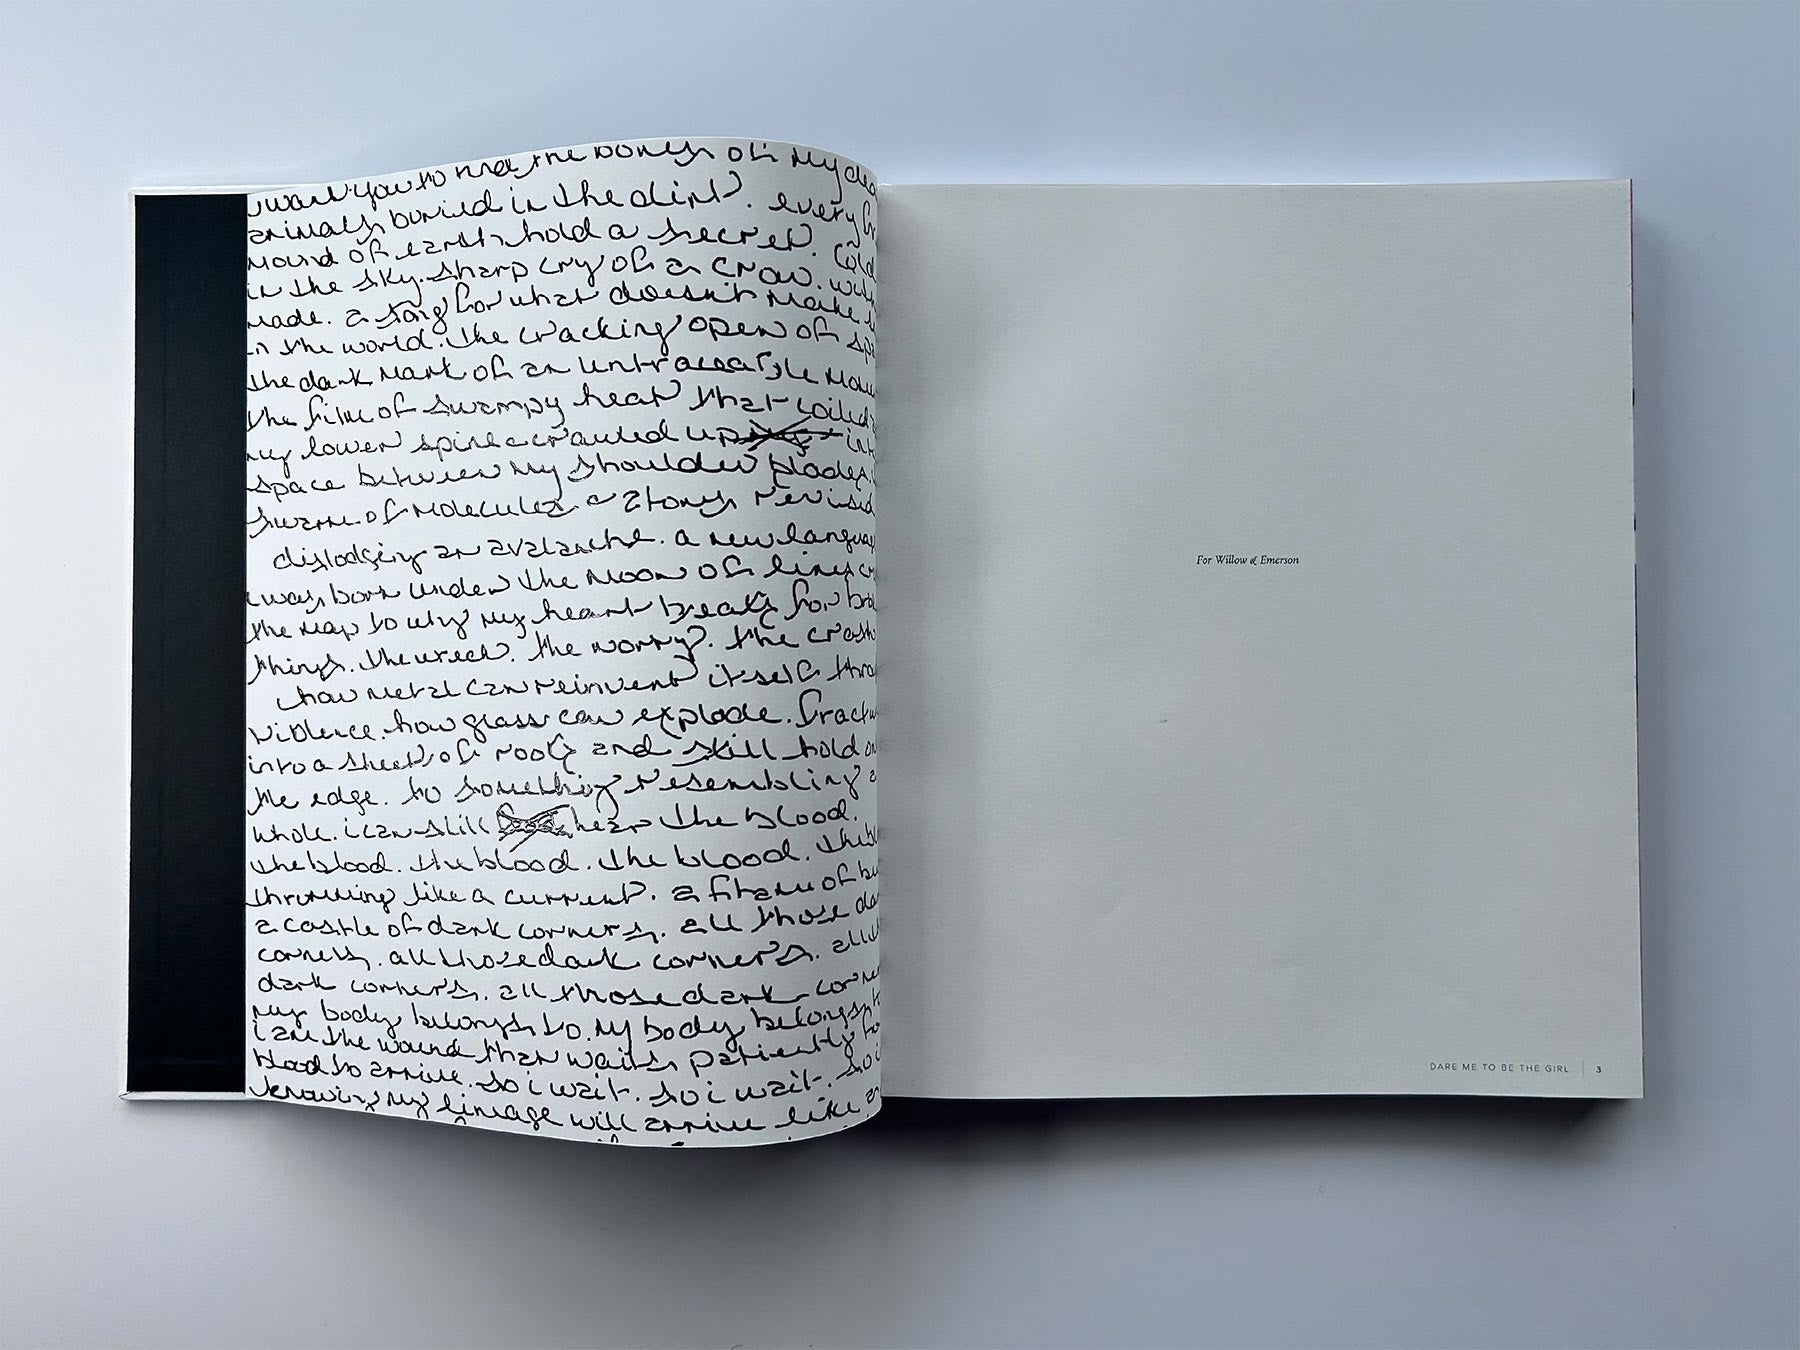 i want you to find the bones of my dea
animals buried in the dirt. every
mound of earth hold a secret. cold
in the sky. sharp cry of a crow.
made. a song for what doesn't make
in the world. the cracking open of
the dark mark of an untraceable
the film of swampy heat that coiled
my lower spine & crawled up
space between my shoulder blades.
swarm of molecules & atoms revised
dislodging an avalanche. a new langua
i was born under the moon of
the map to why my heart breaks for
things. the wreck. the worry. the
how metal can reinvent itself thro
violence. how glass can explode. fractu
into a sheet of and still hold on
the edge. to something resembling a
whole. i can still hear the blood.
the blood. the blood. the blood. the bl
thrumming like a current. a of
a castle of dark corners. all those da
corners. all those dark corners. all
dark corners. all those dark corne
my body belongs to. my body belongs
i am the wound that waits patiently fo
blood to arrive. so i wait. so i wait. so i
knowing my lineage will arrive like
For Willow & Emerson
DARE ME TO BE THE GIRL | 3